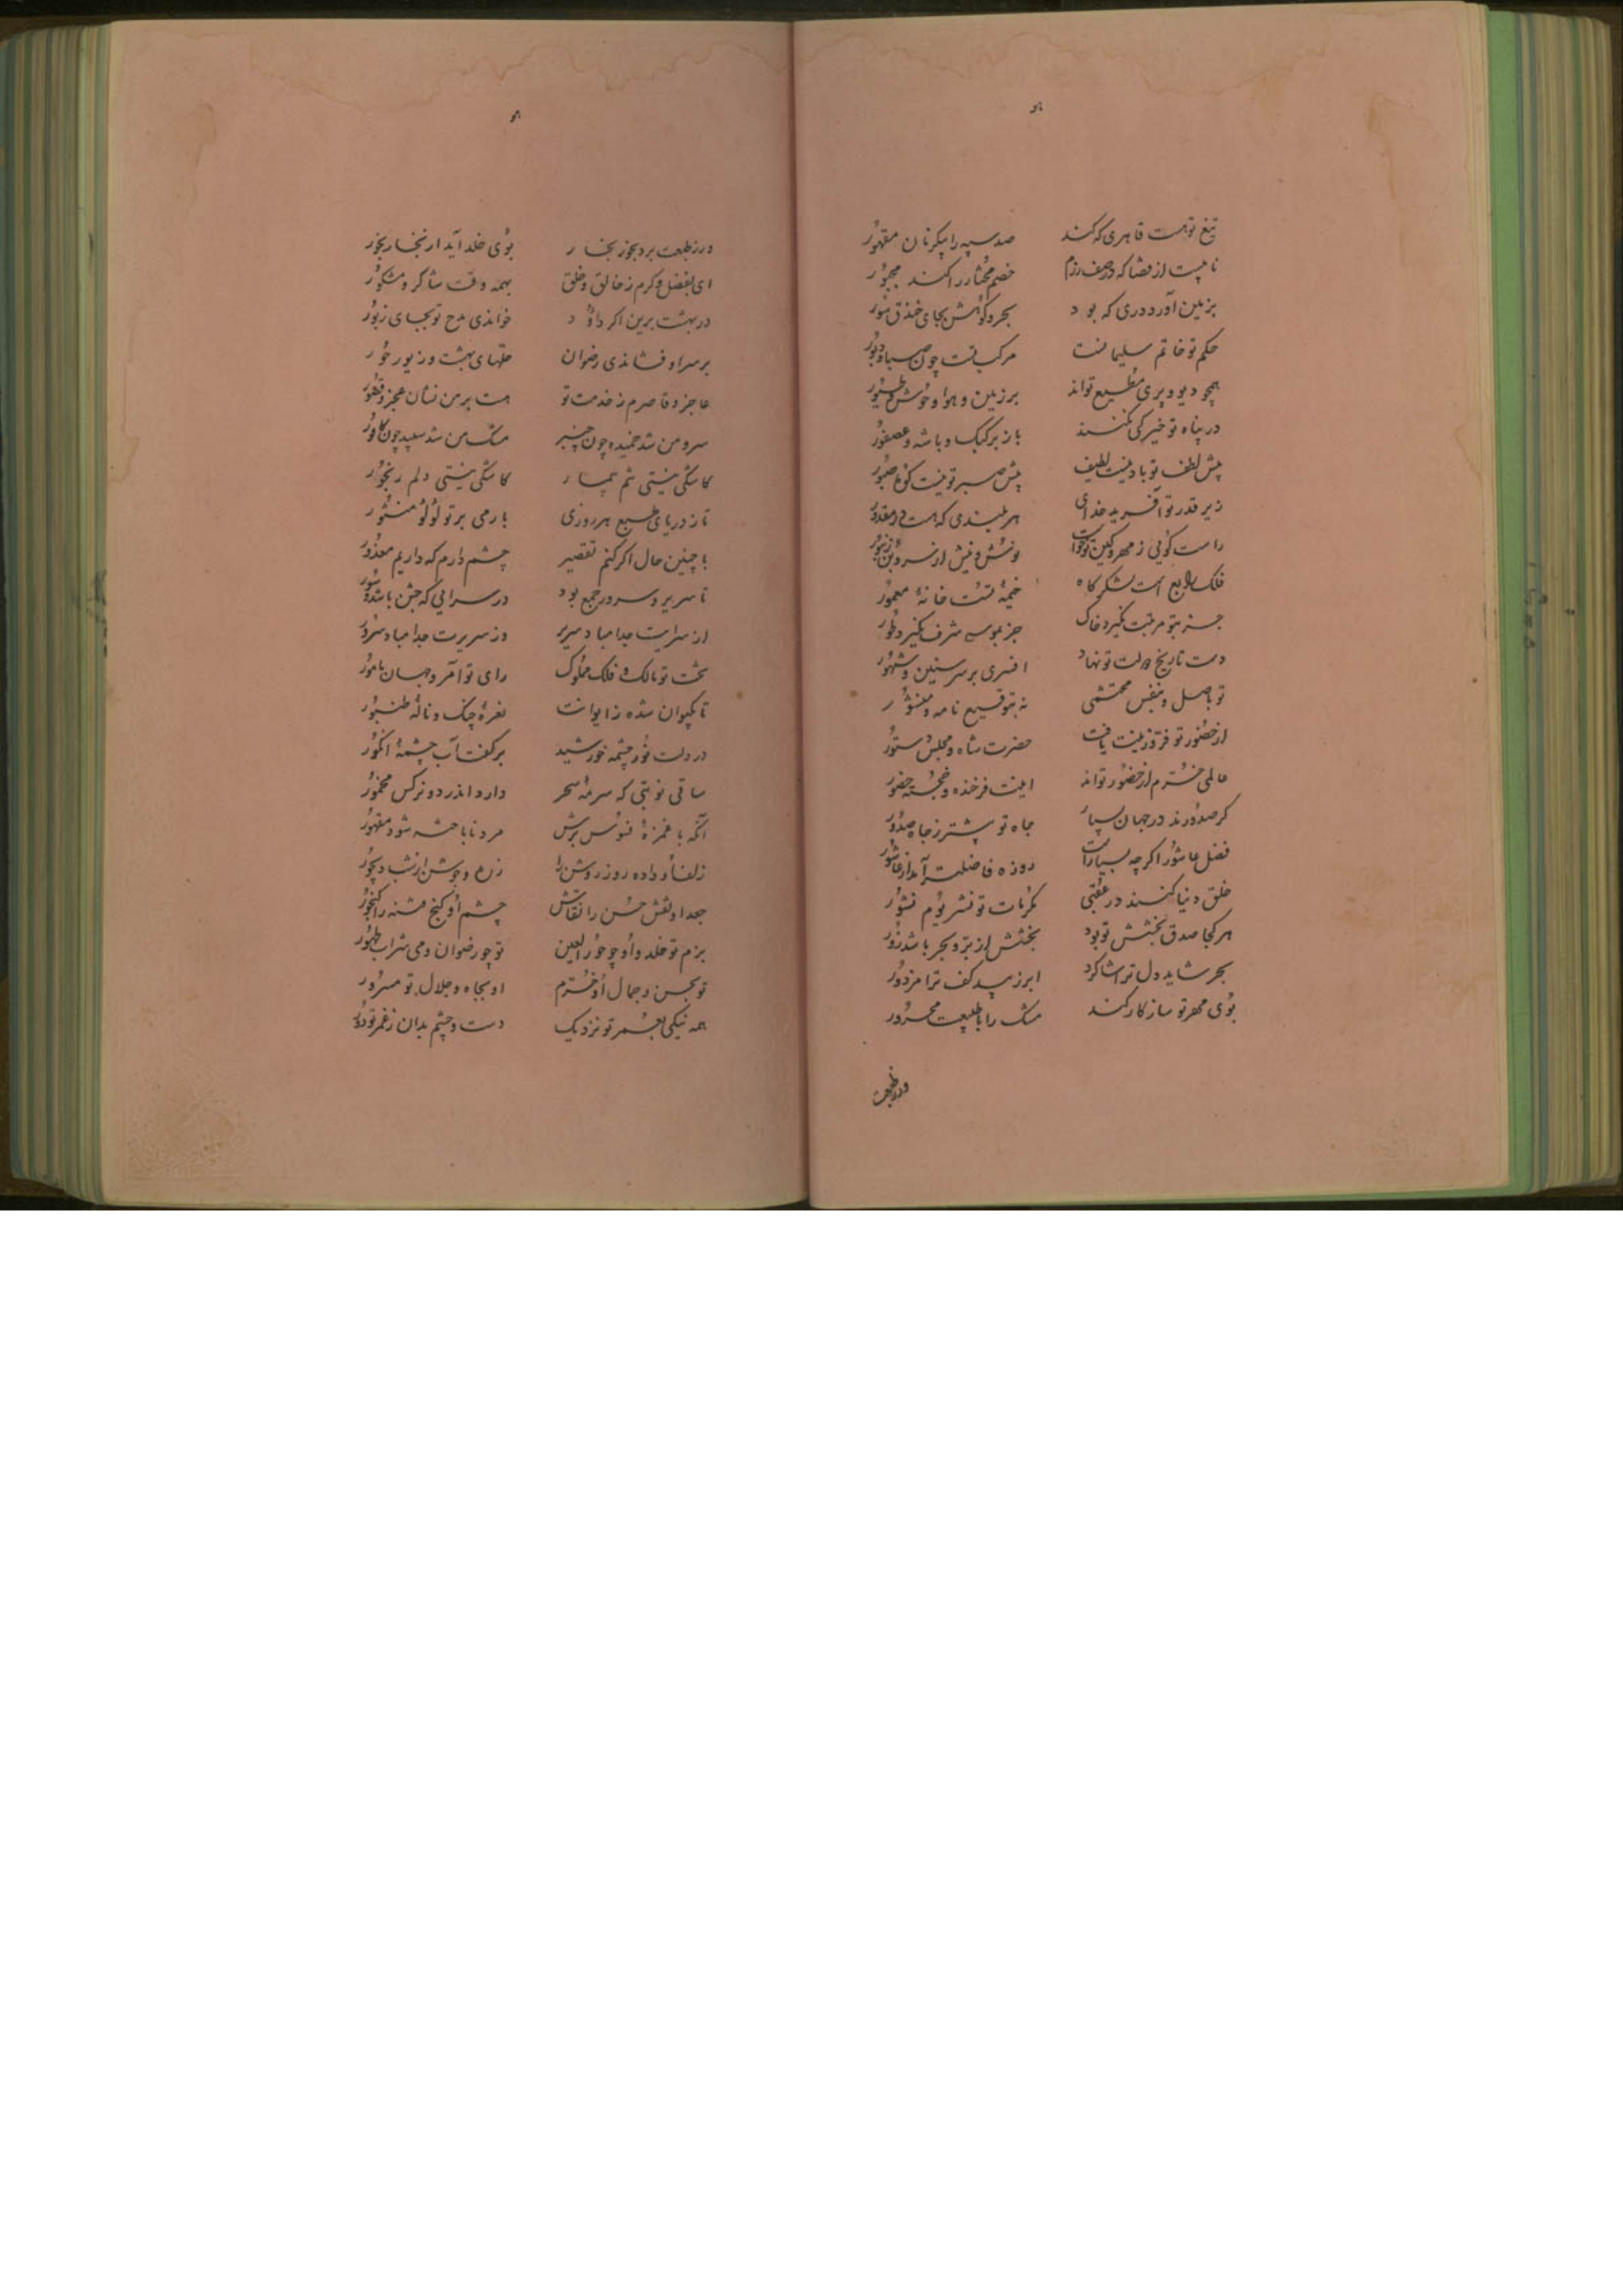 تیغ تو هست قاهری که کند صد سپه را بیکزمان مقهور
نایبست از قضا که در صف رزم خصم مختار را کند مجبور
بزمین آورد دری که بود بحر و کوهش بجای خندق سور
حکم تو خاتم سلیمانست مرکب تست چون صبا و دبور
همچو دیو و پری مطیع تواند بر زمین و هوا وحوش و طیور
در پناه تو خیرگی نکنند باز بر کبک و باشه و عصفور
پیش لطف تو باد نیست لطیف پیش صبر تو نیست کوه صبور
زیر قدر تو آفرید خدای هر بلندی که هست در مقدور
راست گوئی ز مهر و کین تو خواست نوش و نیش از سر و بن زنبور
فلک رابع است لشکرگاه خیمه تست خانهٔ معمور
جز بتو مرتبت نگیرد خاک جز بموسی شرف نگیرد طور
دست تاریخ دولت تو نهاد افسری بر سر سنین و شهور
تو باصل و بنفس محتشمی نه بتوقیع نامه و منشور
از حضور تو فر و زینت یافت حضرت شاه و مجلس دستور
عالمی خرم از حضور تواند اینت فرخنده و خجسته حضور
گر صدورند در جهان بسیار جاه تو بیشتر ز جاه صدور
فضل عاشورا اگر چه بسیارست روزه فاضلتر آمد از عاشور
خلق دنیا کنند در عقبی مکرمات تو نشر یوم نشور
هر کجا صدق بخشش تو بود بخشش از بر و بحر باشد زور
بحر شاید دل ترا شاگرد ابر زیبد کف ترا مزدور
بوی مهر تو سازگار کند مشک را با طبیعت محرور
ور ز طبعت
ور ز طبعت برد بجوز بخار بوی خلد آید از بخار بخور
ای بفضل و کرم ز خالق و خلق بهمه وقت شاکر و مشکور
در بهشت برین اگر داود خواندی مدح تو بجای زبور
بر سر او فشاندی رضوان حلّهای بهشت و زیور حور
عاجز و قاصرم ز خدمت تو هست بر من نشان عجز و قصور
سرو من شد خمیده چون چنبر مشک من شد سپید چون کافور
کاشکی نیستی تنم بیمار کاشکی نیستی دلم رنجور
تا ز دریای طبع هر روزی بارمی بر تو لؤلؤ منثور
با چنین حال اگر کنم تقصیر چشم دارم که داریم معذور
تا سریر و سرور جمع بود در سرایی که جشن باشد و سور
از سرایت جدا مباد سریر وز سریرت جدا مباد سرور
بخت تو مالک و فلک مملوک رای تو آمر و جهان مامور
تا بکیوان شده ز ایوانت نعرهٔ چنگ و نالهٔ طنبور
در دلت نور چشمه خورشید بر کفت آب چشمهٔ انگور
ساقی نوبتی که سرمهٔ سحر دارد اندر دو نرگس مخمور
آنکه با غمزهٔ فسوس برش مرد ناباخته شود مقهور
زلف او داده روز روشن را زره و جوشن از شب دیجور
جعد او نقش حسن را نقاش چشم او گنج فتنه را گنجور
بزم تو خلد و او چو حور العین تو چو رضوان و می شراب طهور
تو بحسن و جمال او خرّم او بجاه و جلال تو مسرور
همه نیکی بعمر تو نزدیک دست و چشم بدان ز عمر تو دور